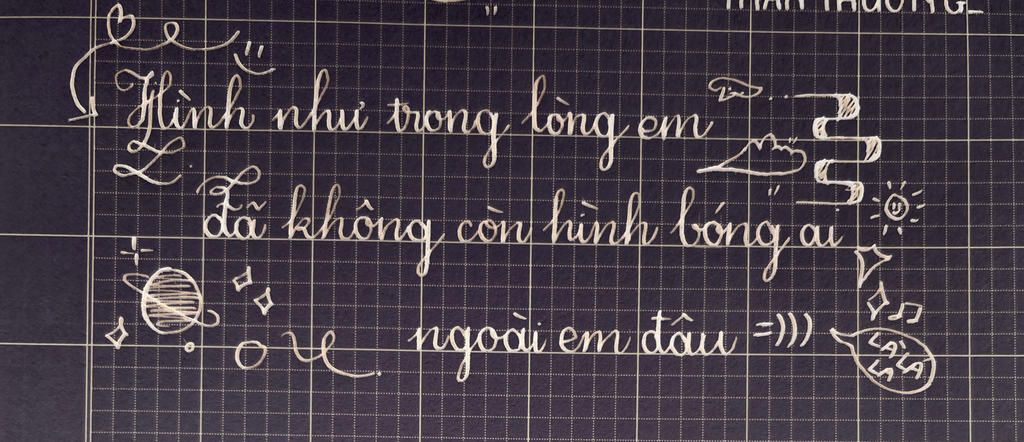 THÂN THƯƠNG_
Hình như trong lòng em
đã không còn hình bóng ai
ngoài em đâu =)))
LÀ LÁ
LA LA